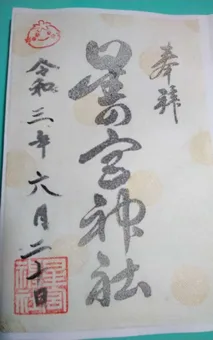 奉拝
星宮神社
令和三年六月二十日